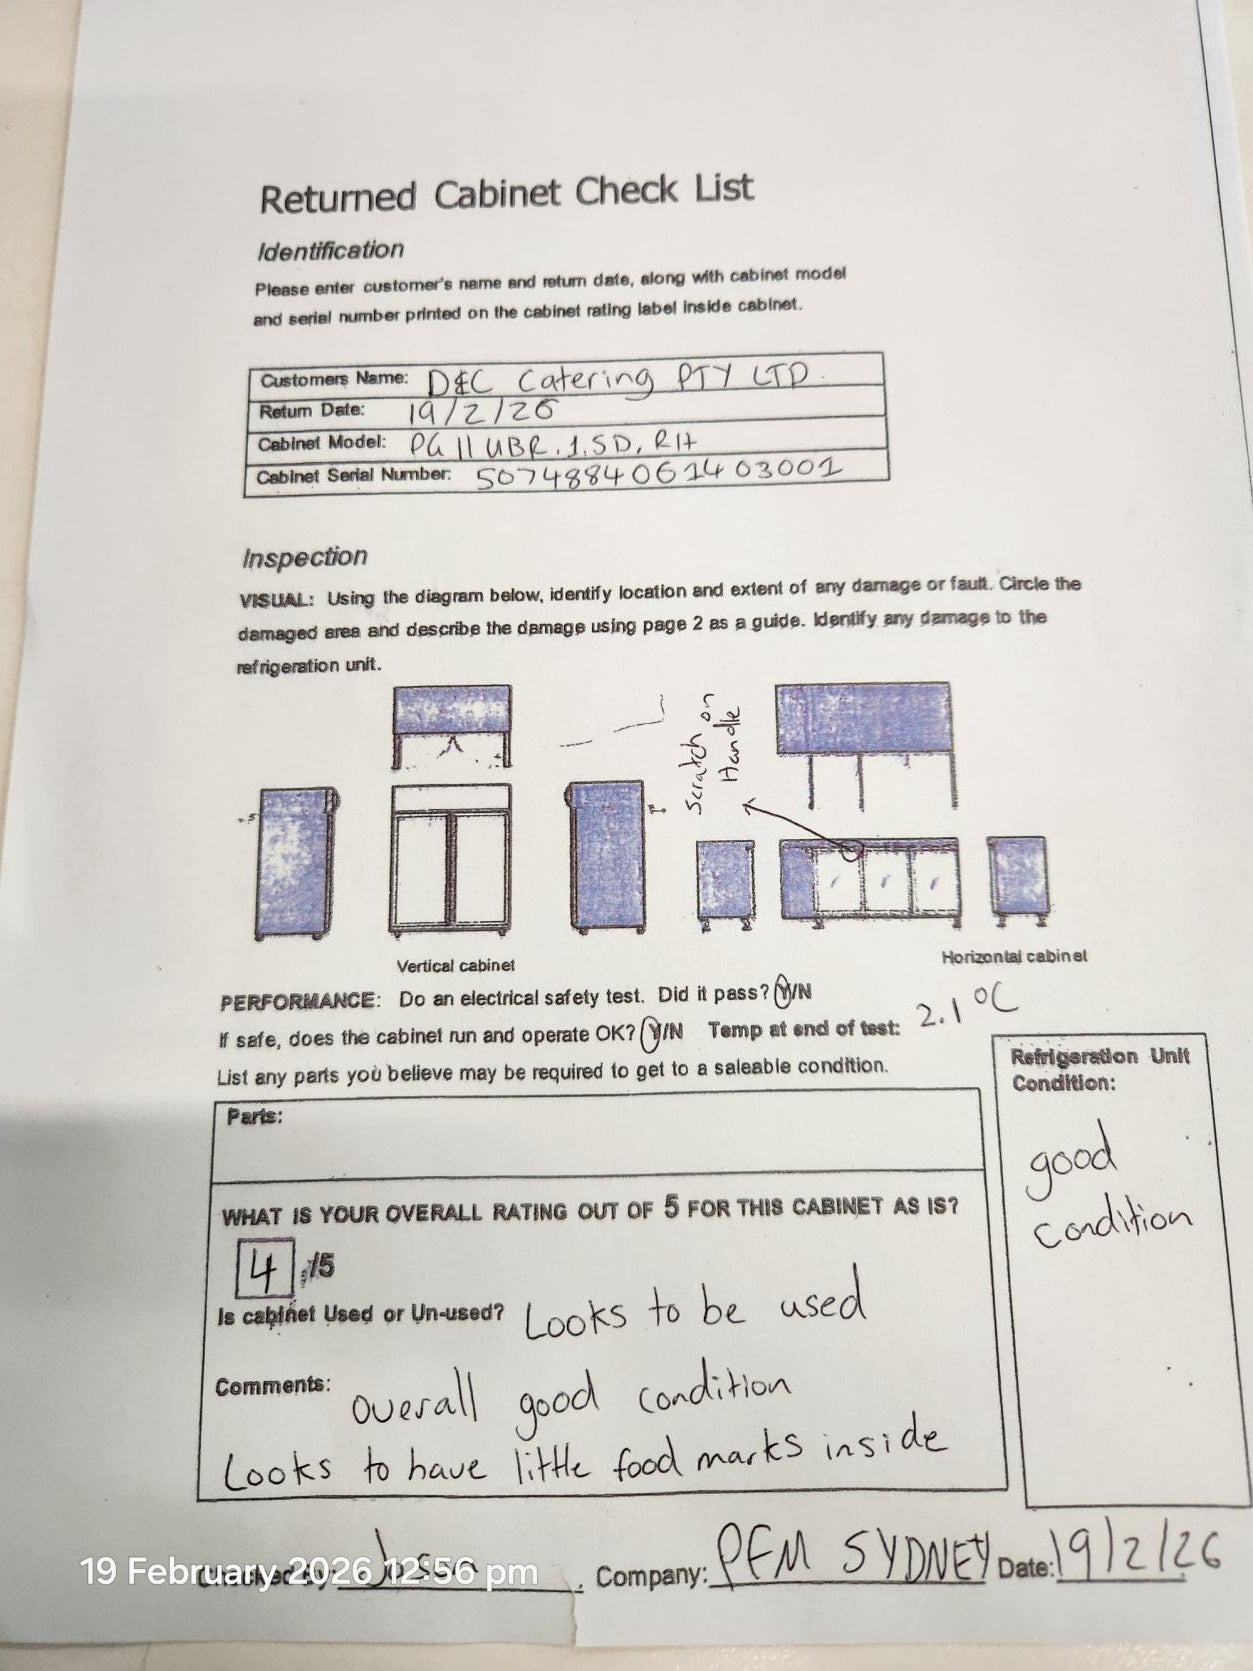 Returned Cabinet Check List
Identification
Please enter customer's name and return date, along with cabinet model
and serial number printed on the cabinet rating label inside cabinet.
Customers Name: D&C Catering PTY LTD.
Return Date: 19/2/26
Cabinet Model: PG 11 UBR.1.SD.RH
Cabinet Serial Number: 5074884061403001
Inspection
VISUAL: Using the diagram below, identify location and extent of any damage or fault. Circle the
damaged area and describe the damage using page 2 as a guide. Identify any damage to the
refrigeration unit.
Scratch on
Handle
Vertical cabinet
Horizontal cabinet
PERFORMANCE: Do an electrical safety test. Did it pass? Y/N
If safe, does the cabinet run and operate OK? Y/N Temp at end of test: 2.1°C
List any parts you believe may be required to get to a saleable condition.
Parts:
Refrigeration Unit
Condition:
good
condition
WHAT IS YOUR OVERALL RATING OUT OF 5 FOR THIS CABINET AS IS?
4 /5
Is cabinet Used or Un-used? Looks to be used
Comments: overall good condition
Looks to have little food marks inside
Company: PFM SYDNEY Date: 19/2/26
19 February 2026 12:56 pm